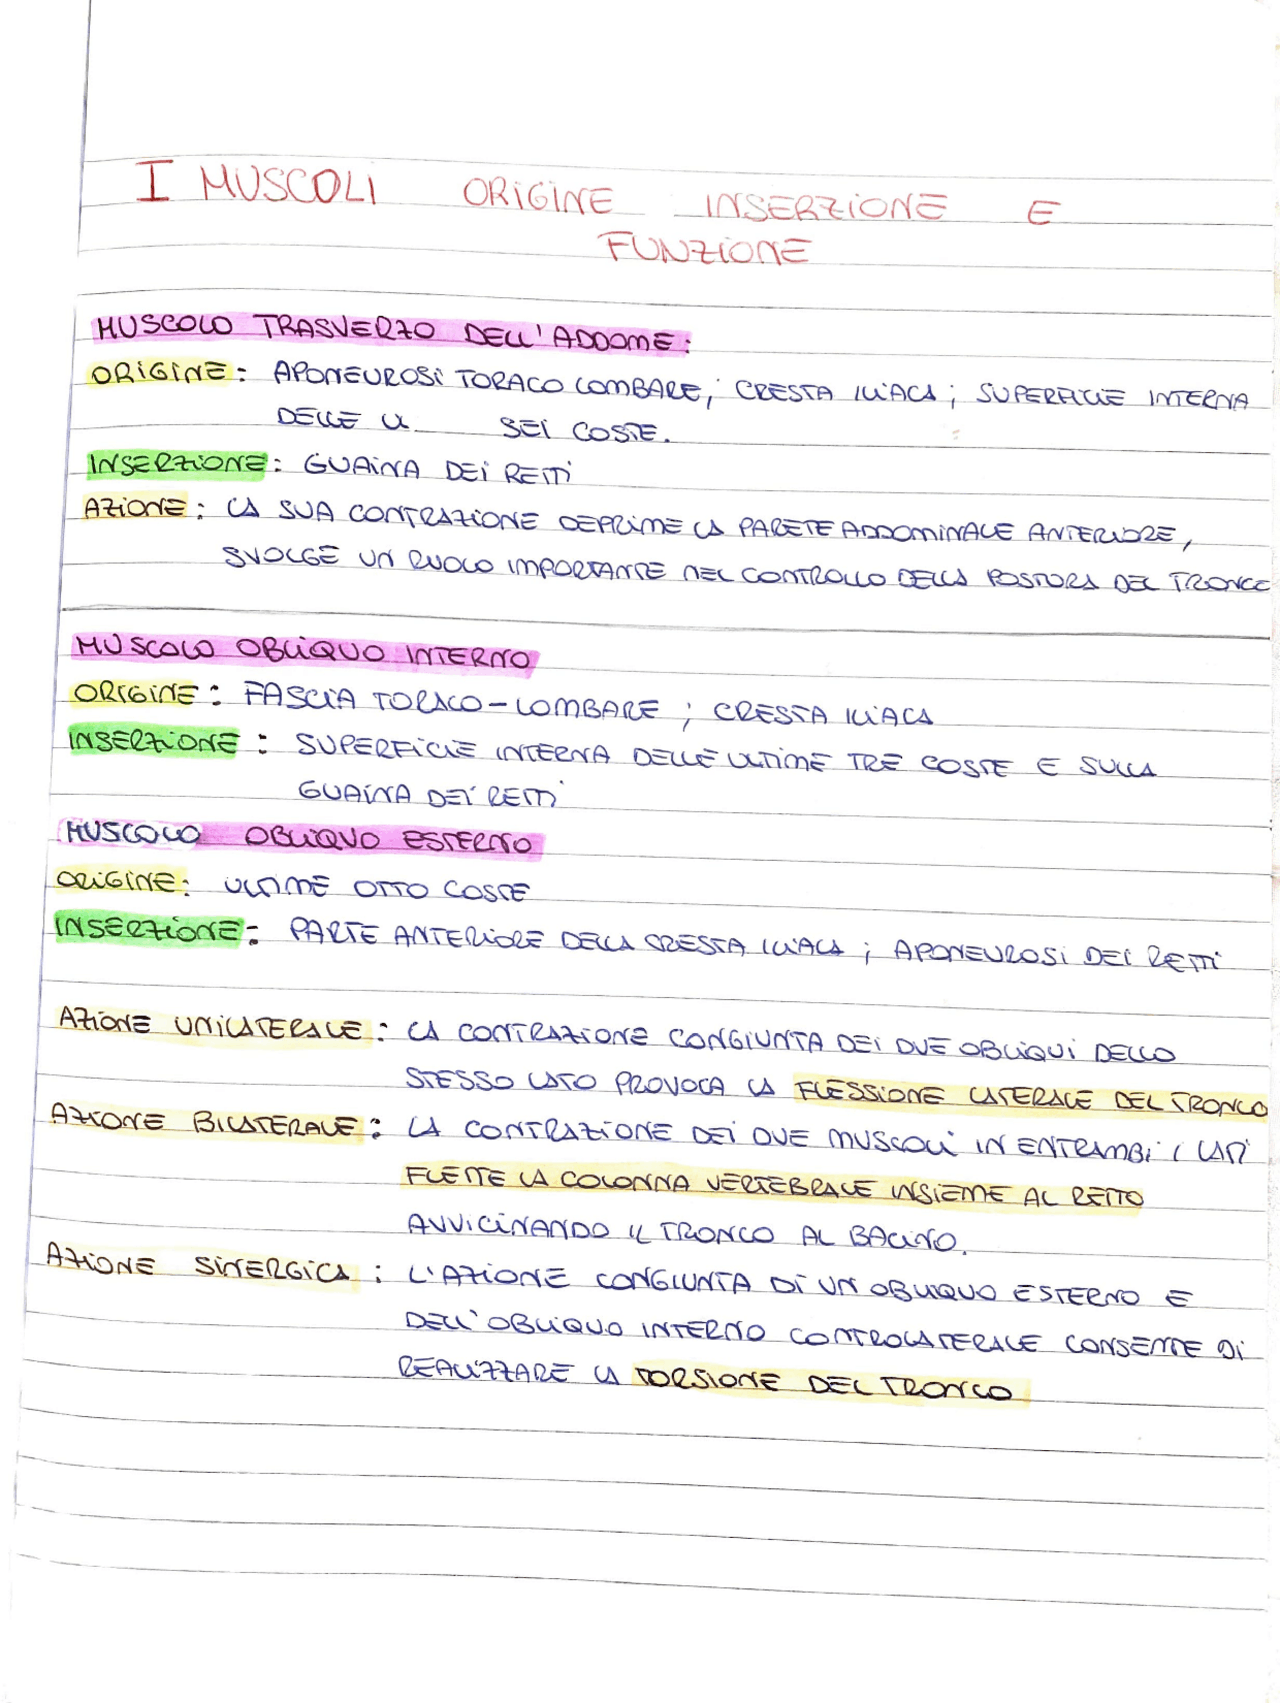 I MUSCOLI ORIGINE INSERZIONE E
FUNZIONE
MUSCOLO TRASVERZO DELL'ADDOME:
ORIGINE: APONEUROSI TORACO LOMBARE; CRESTA ILIACA; SUPERFICIE INTERNA
DELLE U SEI COSTE.
INSERZIONE: GUAINA DEI RETTI
AZIONE: LA SUA CONTRAZIONE DEPRIME LA PARETE ADDOMINALE ANTERIORE,
SVOLGE UN RUOLO IMPORTANTE NEL CONTROLLO DELLA POSTURA DEL TRONCO
MUSCOLO OBLIQUO INTERNO
ORIGINE: FASCIA TORACO-LOMBARE; CRESTA ILIACA
INSERZIONE: SUPERFICIE INTERNA DELLE ULTIME TRE COSTE E SULLA
GUAINA DEI RETTI
MUSCOLO OBLIQUO ESTERNO
ORIGINE: ULTIME OTTO COSTE
INSERZIONE: PARTE ANTERIORE DELLA CRESTA ILIACA; APONEUROSI DEI RETTI
AZIONE UNILATERALE: LA CONTRAZIONE CONGIUNTA DEI DUE OBLIQUI DELLO
STESSO LATO PROVOCA LA FLESSIONE LATERALE DEL TRONCO
AZIONE BILATERALE: LA CONTRAZIONE DEI DUE MUSCOLI IN ENTRAMBI I LATI
FLETTE LA COLONNA VERTEBRALE INSIEME AL RETTO
AVVICINANDO IL TRONCO AL BACINO.
AZIONE SINERGICA: L'AZIONE CONGIUNTA DI UN OBLIQUO ESTERNO E
DELL'OBLIQUO INTERNO CONTROLATERALE CONSENTE DI
REALIZZARE LA TORSIONE DEL TRONCO